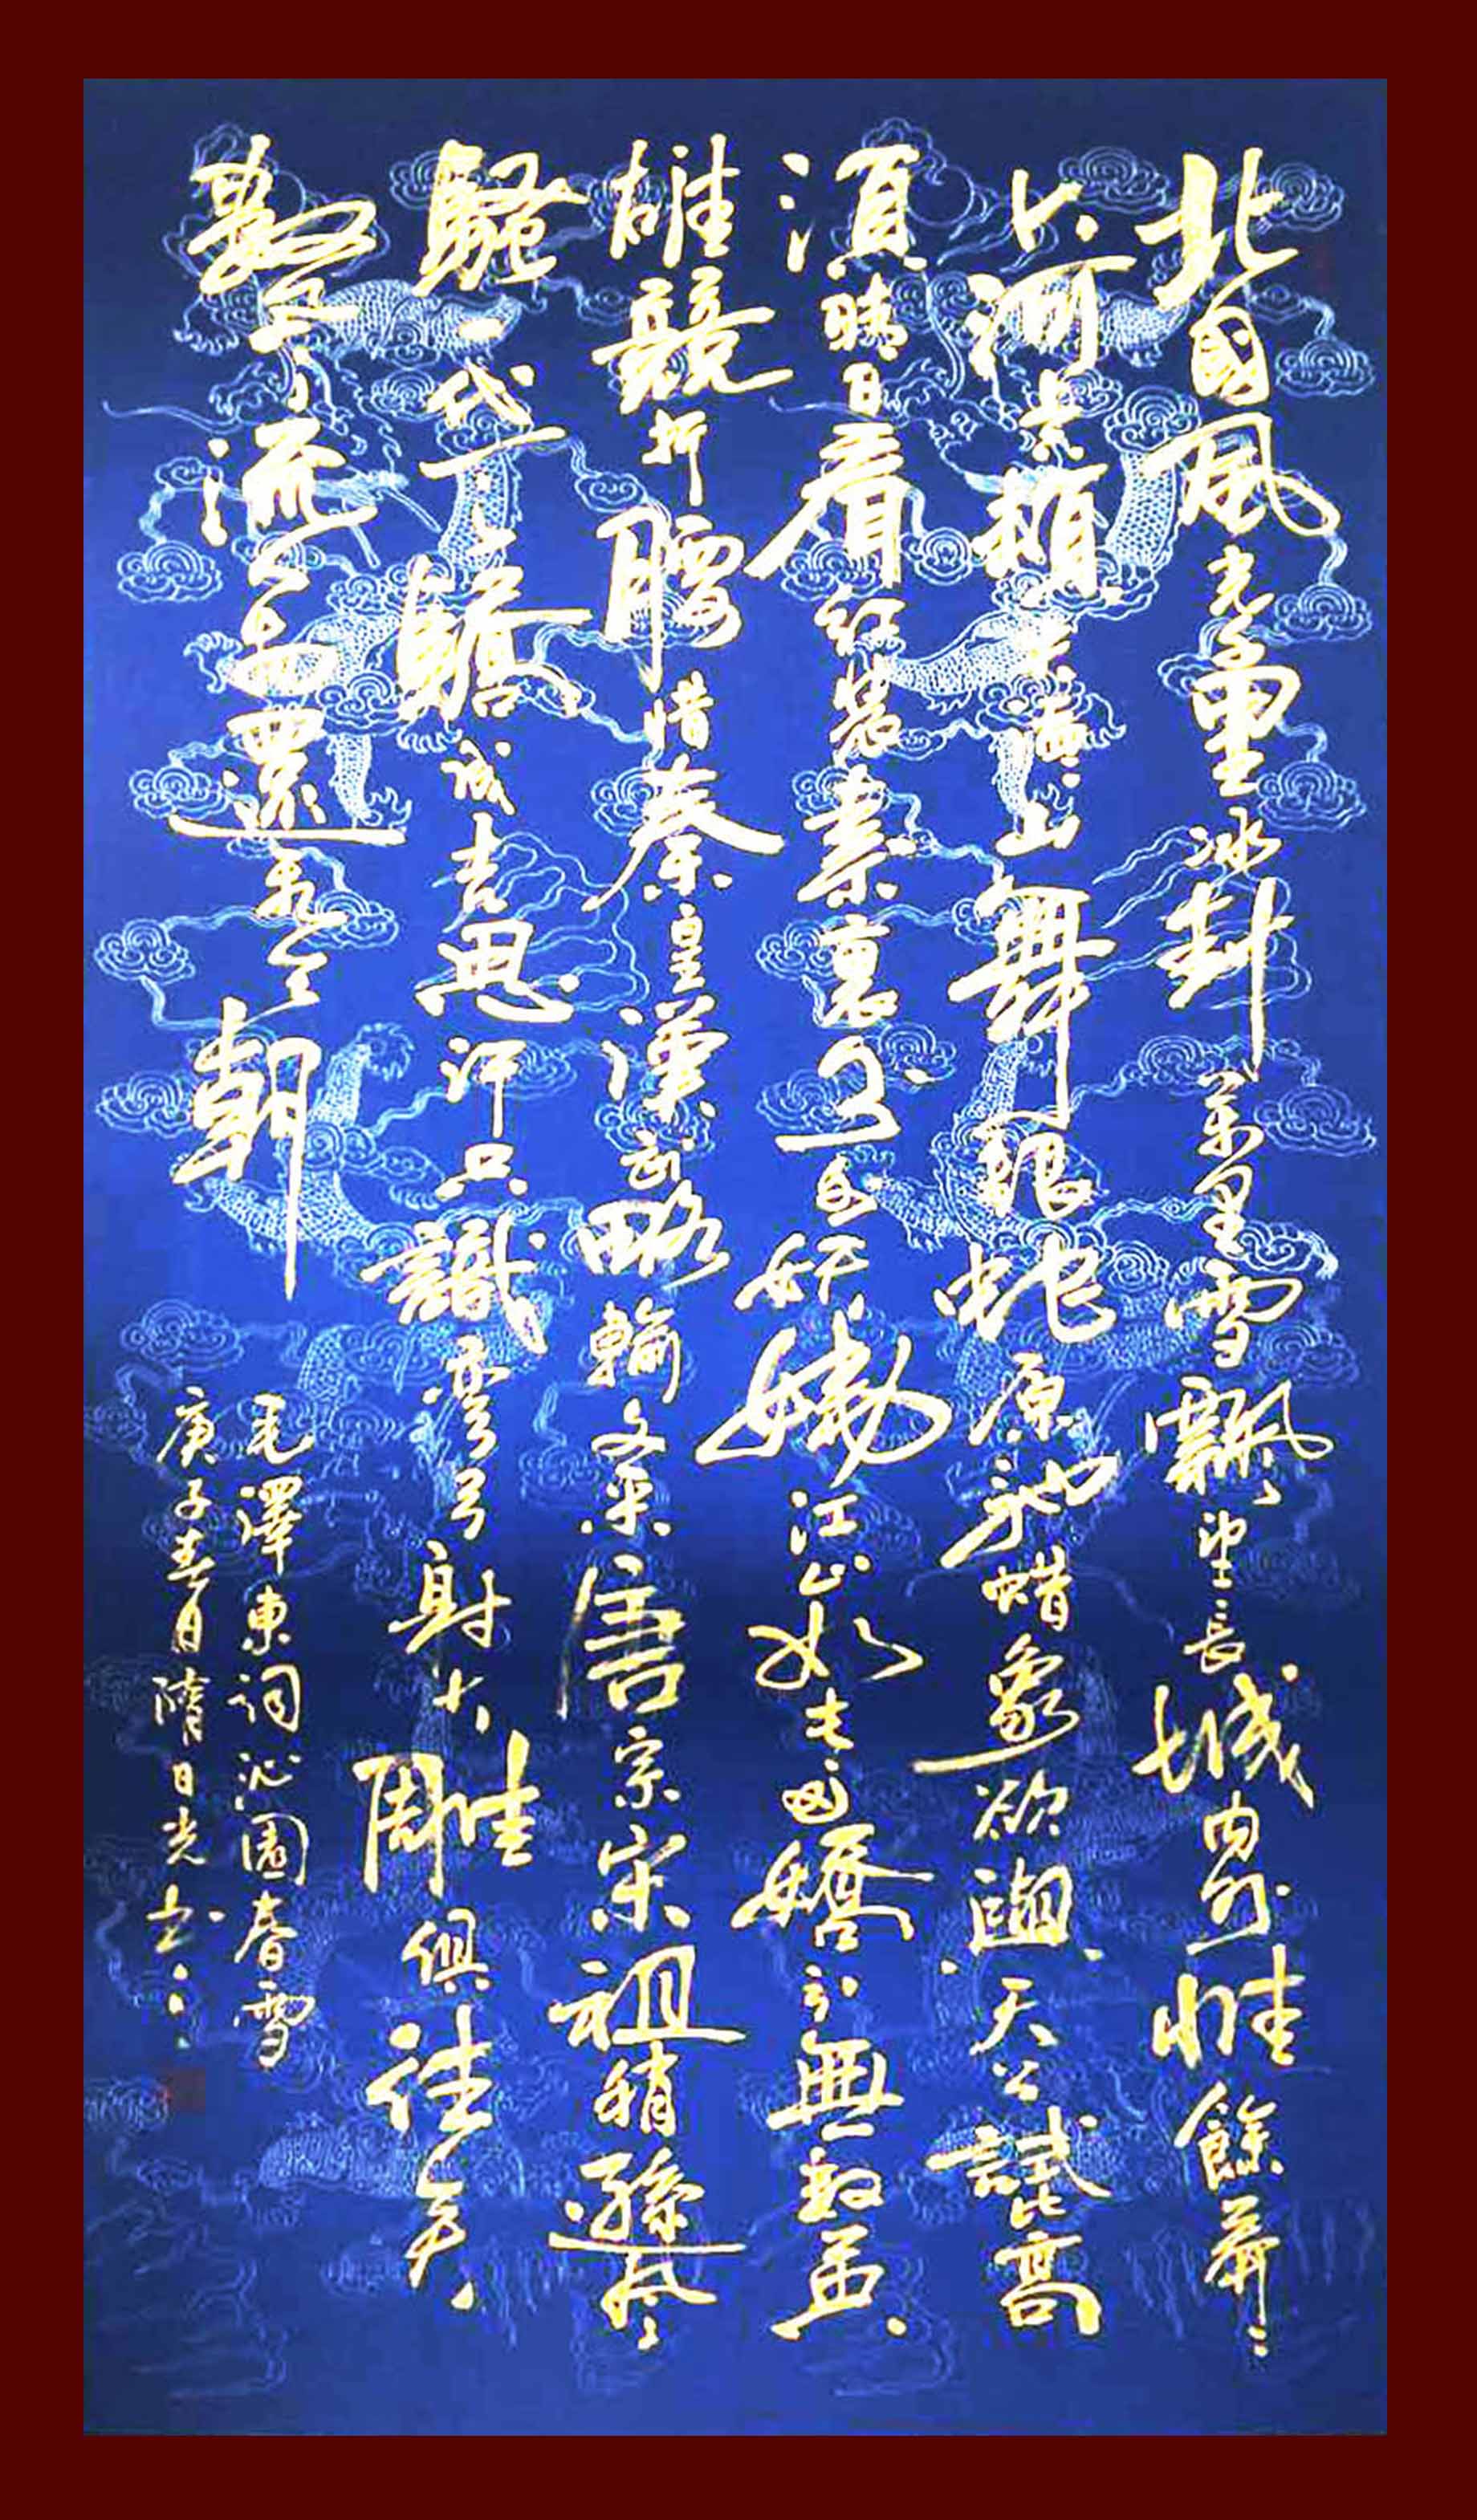 北國風光千里冰封萬里雪飄望長城內外惟餘莽莽
大河上下頓失滔滔山舞銀蛇原馳蜡象欲與天公試比高
須晴日看紅裝素裹分外妖嬈江山如此多嬌引無數英
雄競折腰惜秦皇漢武略輸文采唐宗宋祖稍遜風
騷一代天驕成吉思汗只識彎弓射大雕俱往矣
數風流人物還看今朝
毛澤東詞沁園春雪
庚子春月隋日光书